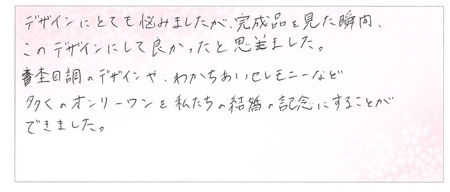 デザインにとても悩みましたが、完成品を見た瞬間、
このデザインにして良かったと思いました。
杢目調のデザインや、わかちあいセレモニーなど
多くのオンリーワンを私たちの結婚の記念にすることが
できました。